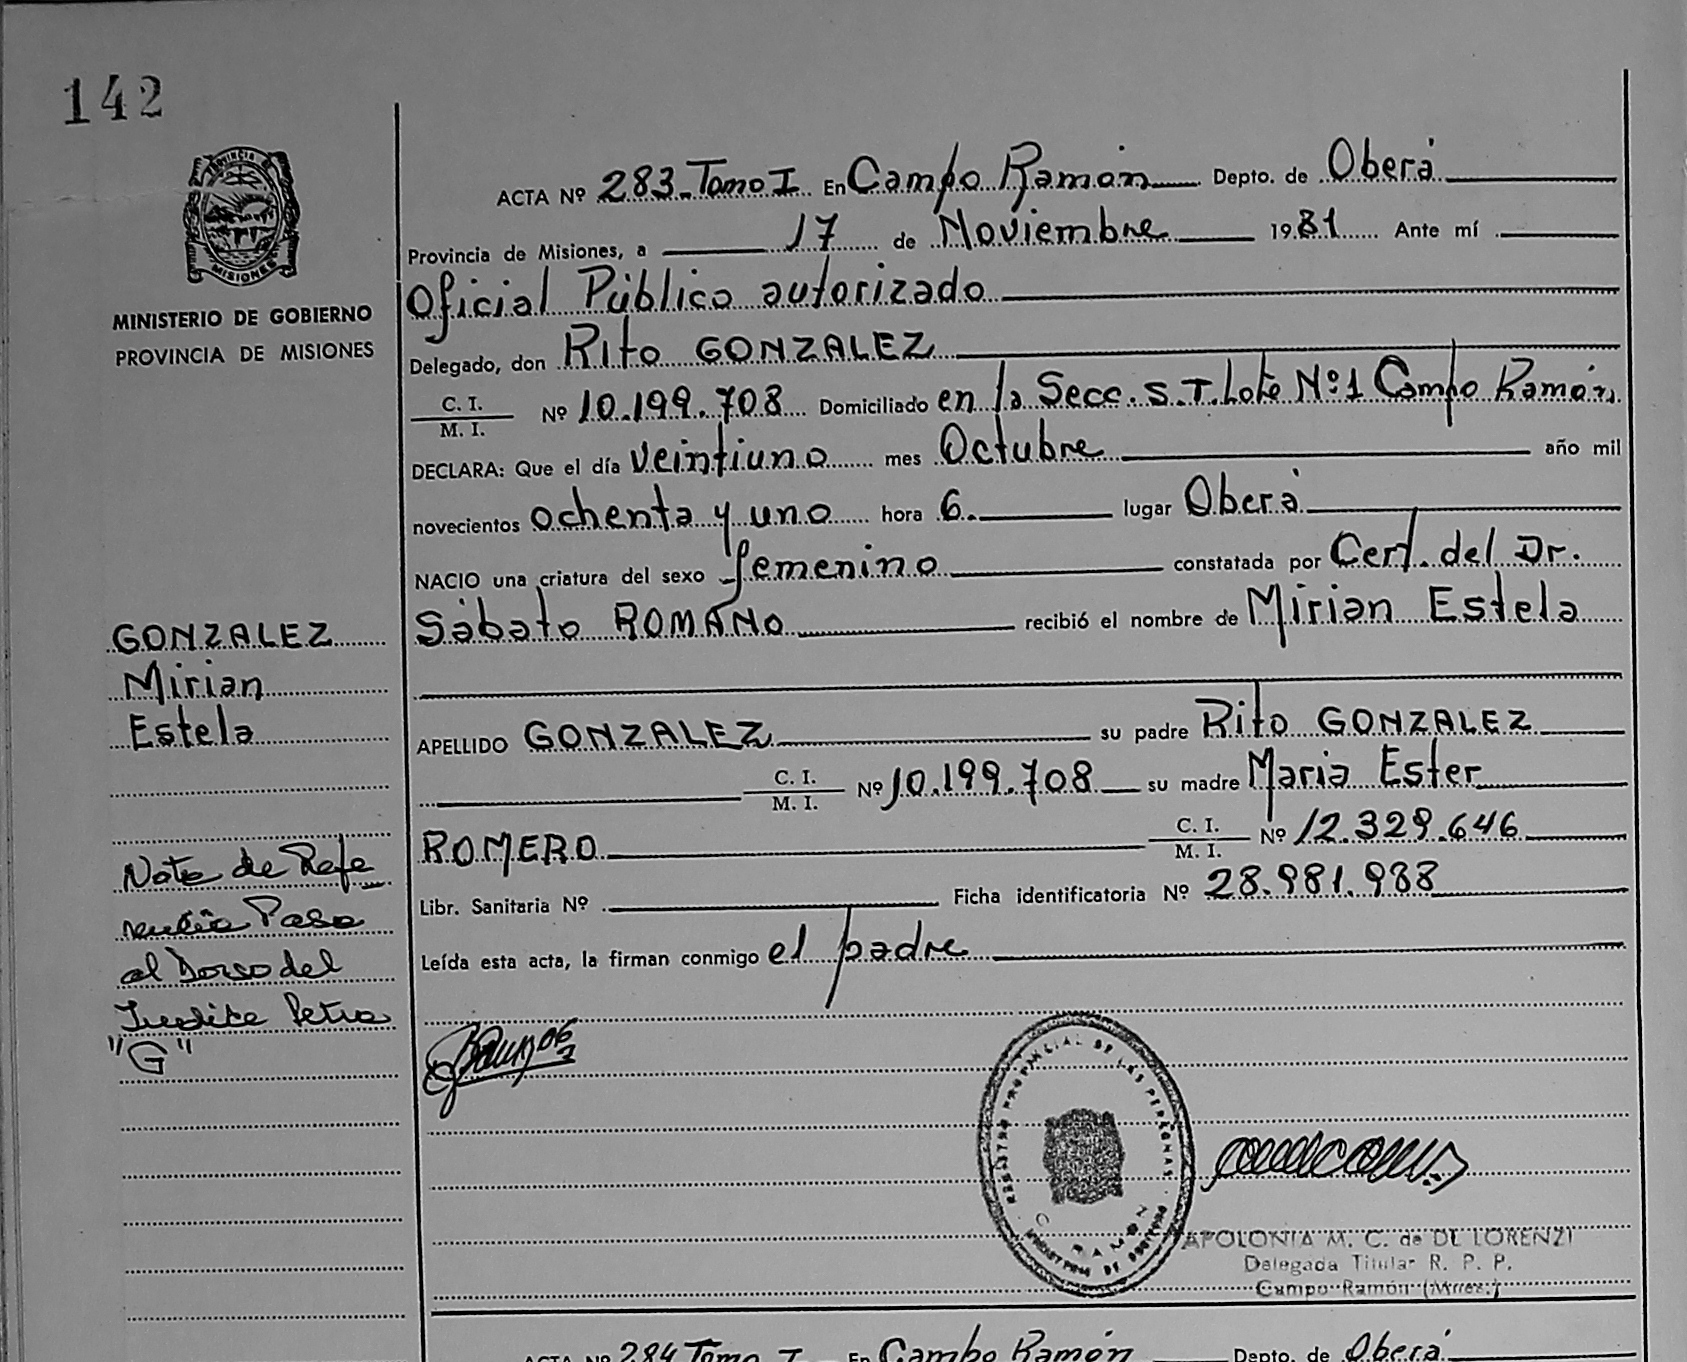 142
PROVINCIA DE
MISIONES
MINISTERIO DE GOBIERNO
PROVINCIA DE MISIONES
ACTA Nº 283-Tomo I En Campo Ramón Depto. de Oberá
Provincia de Misiones, a 17 de Noviembre 1981 Ante mí
Oficial Público autorizado
Delegado, don Rito GONZALEZ
C. I. / M. I. Nº 10.199.708 Domiciliado en la Secc. S.T. Lote Nº 1 Campo Ramón
DECLARA: Que el día veintiuno mes Octubre año mil
novecientos ochenta y uno hora 6. lugar Oberá
NACIO una criatura del sexo femenino constatada por Cert. del Dr.
Sábato ROMANO recibió el nombre de Mirian Estela
APELLIDO GONZALEZ su padre Rito GONZALEZ
C. I. / M. I. Nº 10.199.708 su madre Maria Ester
ROMERO C. I. / M. I. Nº 12.329.646
Libr. Sanitaria Nº Ficha identificatoria Nº 28.981.988
Leída esta acta, la firman conmigo el padre
GONZALEZ
Mirian
Estela
Nota de Refe
rencia Pasa
al Dorso del
Indice Letra
"G"
REGISTRO PROVINCIAL DE LAS PERSONAS
CAMPO RAMON
APOLONIA M. C. de DE LORENZI
Delegada Titular R. P. P.
Campo Ramón (Mnes.)
ACTA Nº 284 Tomo I En Campo Ramón Depto. de Oberá